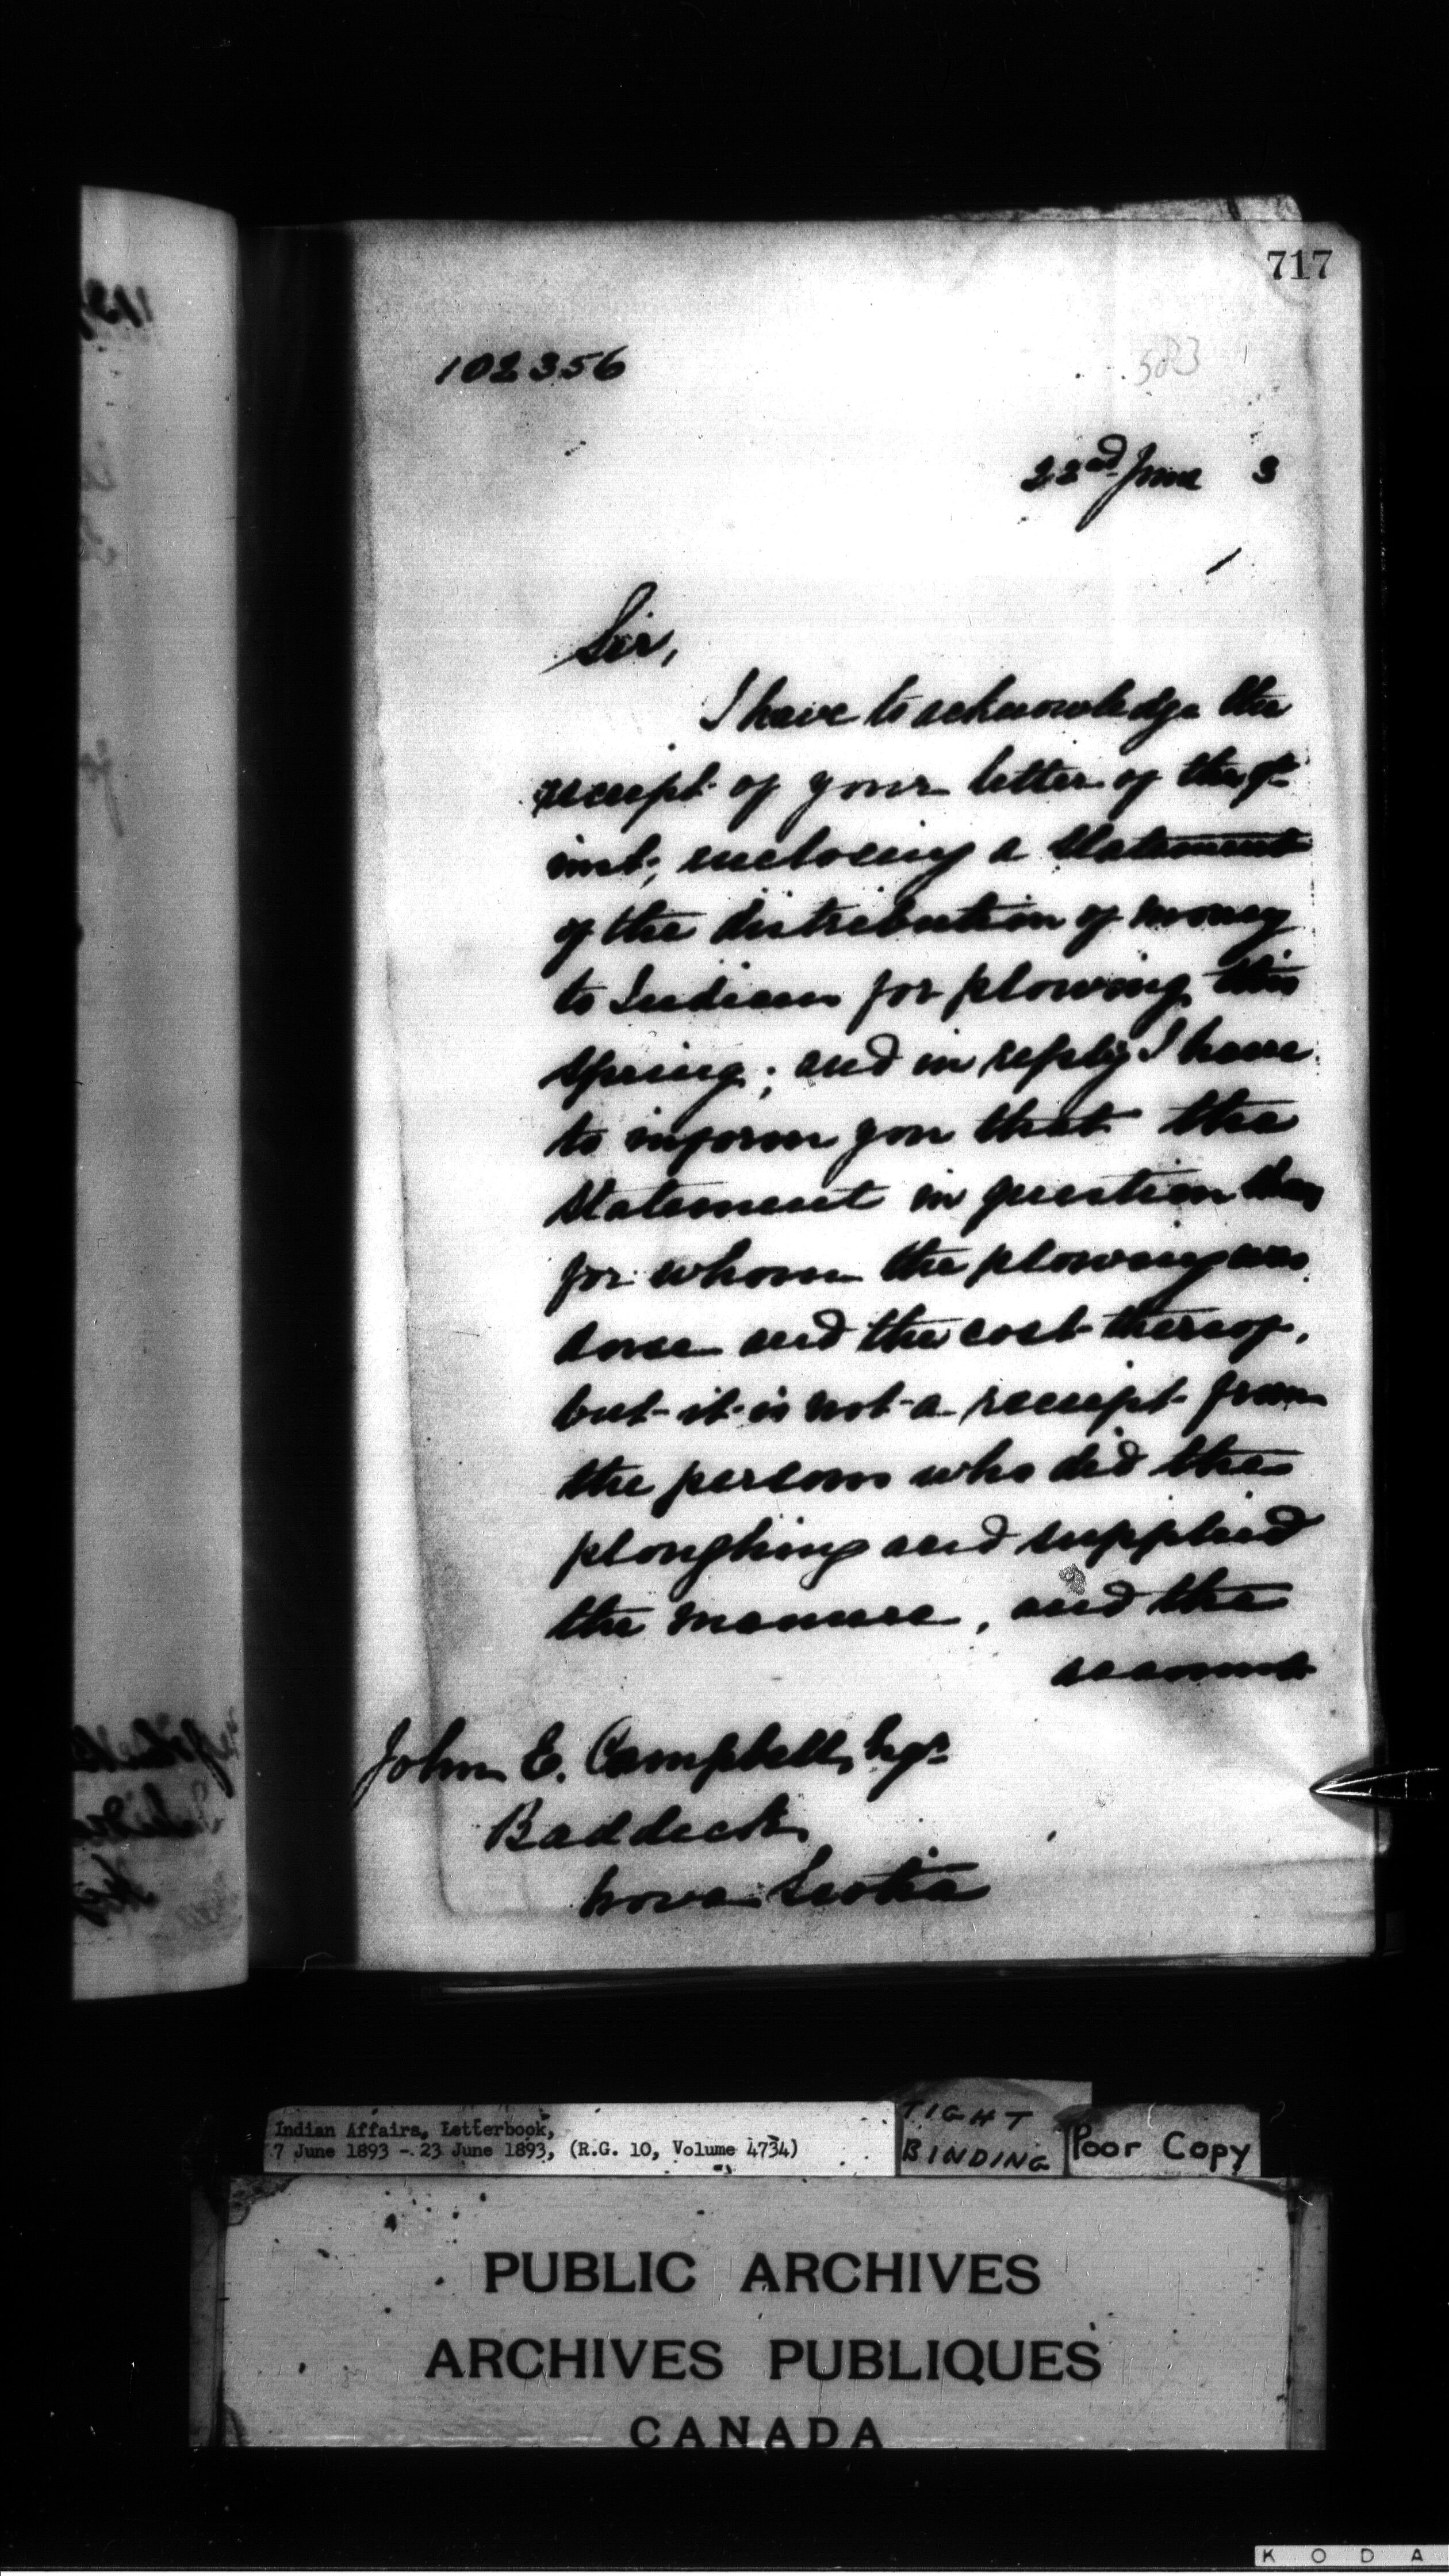 717
102356
583
22nd June 3
Sir,
I have to acknowledge the
receipt of your letter of the
inst; enclosing a statement
of the distribution of money
to Indians for plowing this
spring; and in reply I have
to inform you that the
statement in question
for whom the plowing was
done and the cost thereof,
but it is not a receipt from
the persons who did the
ploughing and supplied
the manure, and the
John E. Campbell, Esqr
Baddeck,
Nova Scotia
Indian Affairs, Letterbook,
7 June 1893 - 23 June 1893, (R.G. 10, Volume 4734)
TIGHT
BINDING
Poor Copy
PUBLIC ARCHIVES
ARCHIVES PUBLIQUES
CANADA
K O D A